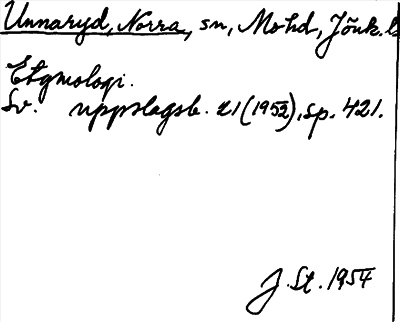 Unnaryd, Norra, sn, Mohd, Jönk. l
Etymologi.
Sv. uppslagsb. 21 (1952), sp. 421.
J. St. 1954